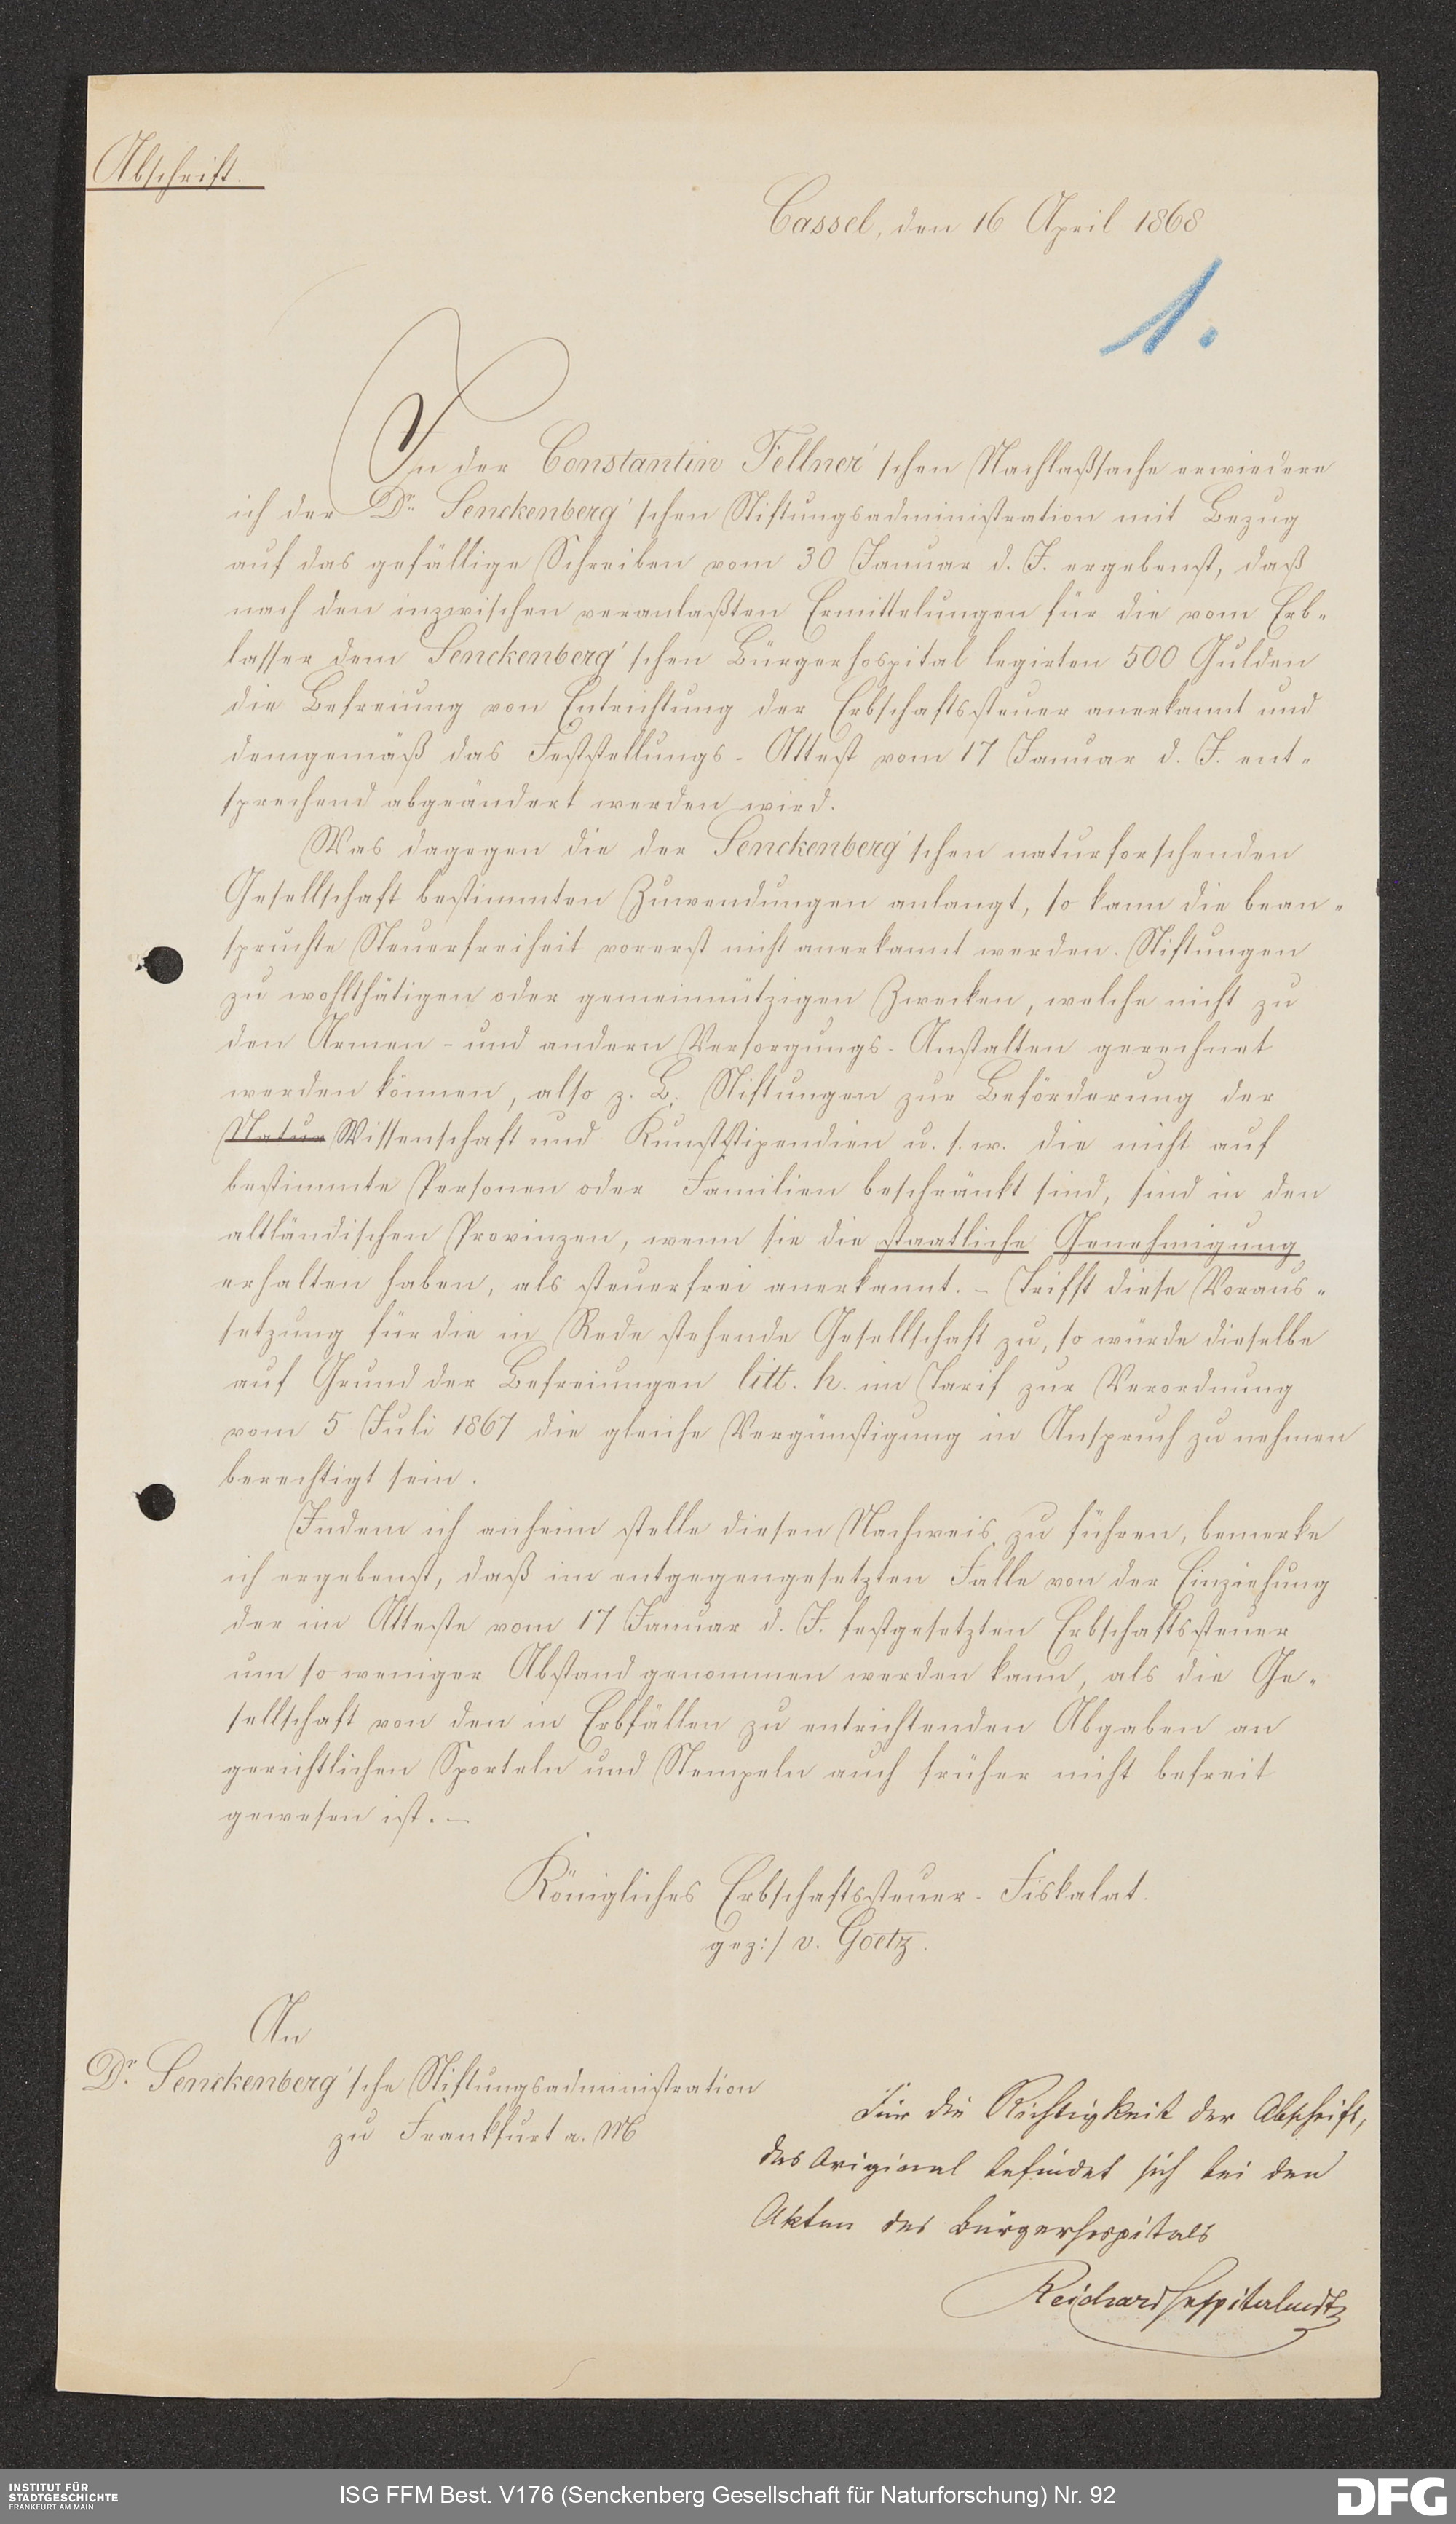 Abschrift.
Cassel, den 16 April 1868
1.
In der Constantin Fellner'schen Nachlaßsache erwiedere
ich der Dr. Senckenberg'schen Stiftungsadministration mit Bezug
auf das gefällige Schreiben vom 30 Januar d. J. ergebenst, daß
nach den inzwischen veranlaßten Ermittelungen für die vom Erb-
lasser dem Senckenberg'schen Bürgerhospital legirten 500 Gulden
die Befreiung von Entrichtung der Erbschaftssteuer anerkannt und
demgemäß das Feststellungs-Attest vom 17 Januar d. J. ent-
sprechend abgeändert werden wird.
Was dagegen die der Senckenberg'schen naturforschenden
Gesellschaft bestimmten Zuwendungen anlangt, so kann die bean-
spruchte Steuerfreiheit vorerst nicht anerkannt werden. Stiftungen
zu wohlthätigen oder gemeinnützigen Zwecken, welche nicht zu
den Armen- und andern Versorgungs-Anstalten gerechnet
werden können, also z. B. Stiftungen zur Beförderung der
Natur Wissenschaft und Kunststipendien u. s. w. die nicht auf
bestimmte Personen oder Familien beschränkt sind, sind in den
altländischen Provinzen, wenn sie die staatliche Genehmigung
erhalten haben, als steuerfrei anerkannt. – Trifft diese Voraus-
setzung für die in Rede stehende Gesellschaft zu, so würde dieselbe
auf Grund der Befreiungen litt. h. im Tarif zur Verordnung
vom 5 Juli 1867 die gleiche Vergünstigung in Anspruch zu nehmen
berechtigt sein.
Indem ich anheim stelle diesen Nachweis zu führen, bemerke
ich ergebenst, daß im entgegengesetzten Falle von der Einziehung
der im Atteste vom 17 Januar d. J. festgesetzten Erbschaftssteuer
um so weniger Abstand genommen werden kann, als die Ge-
sellschaft von den in Erbfällen zu entrichtenden Abgaben an
gerichtlichen Sporteln und Stempeln auch früher nicht befreit
gewesen ist. –
Königliches Erbschaftssteuer-Fiskalat.
gez:/ v. Goetz.
An
Dr. Senckenberg'sche Stiftungsadministration
zu Frankfurt a. M
Für die Richtigkeit der Abschrift,
das Original befindet sich bei den
Akten des Bürgerhospitals
Reichard
INSTITUT FÜR
STADTGESCHICHTE
FRANKFURT AM MAIN
ISG FFM Best. V176 (Senckenberg Gesellschaft für Naturforschung) Nr. 92
DFG